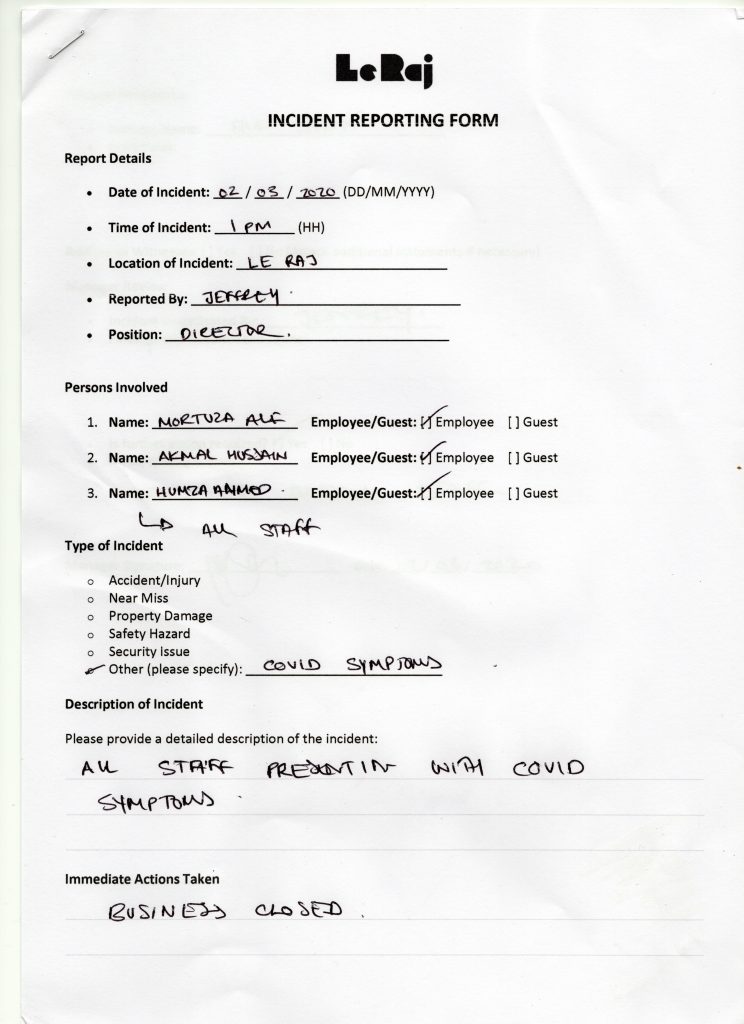 LeRaj
INCIDENT REPORTING FORM
Report Details
• Date of Incident: 02 / 03 / 2020 (DD/MM/YYYY)
• Time of Incident: 1 PM (HH)
• Location of Incident: LE RAJ
• Reported By: JEFFREY.
• Position: DIRECTOR.
Persons Involved
1. Name: MORTUZA ALI Employee/Guest: [✓] Employee [ ] Guest
2. Name: AKMAL HUSSAIN Employee/Guest: [✓] Employee [ ] Guest
3. Name: HUMZA AHMED. Employee/Guest: [✓] Employee [ ] Guest
↳ ALL STAFF
Type of Incident
o Accident/Injury
o Near Miss
o Property Damage
o Safety Hazard
o Security Issue
✓ Other (please specify): COVID SYMPTOMS
Description of Incident
Please provide a detailed description of the incident:
ALL STAFF PRESENTIN WITH COVID
SYMPTOMS.
Immediate Actions Taken
BUSINESS CLOSED.